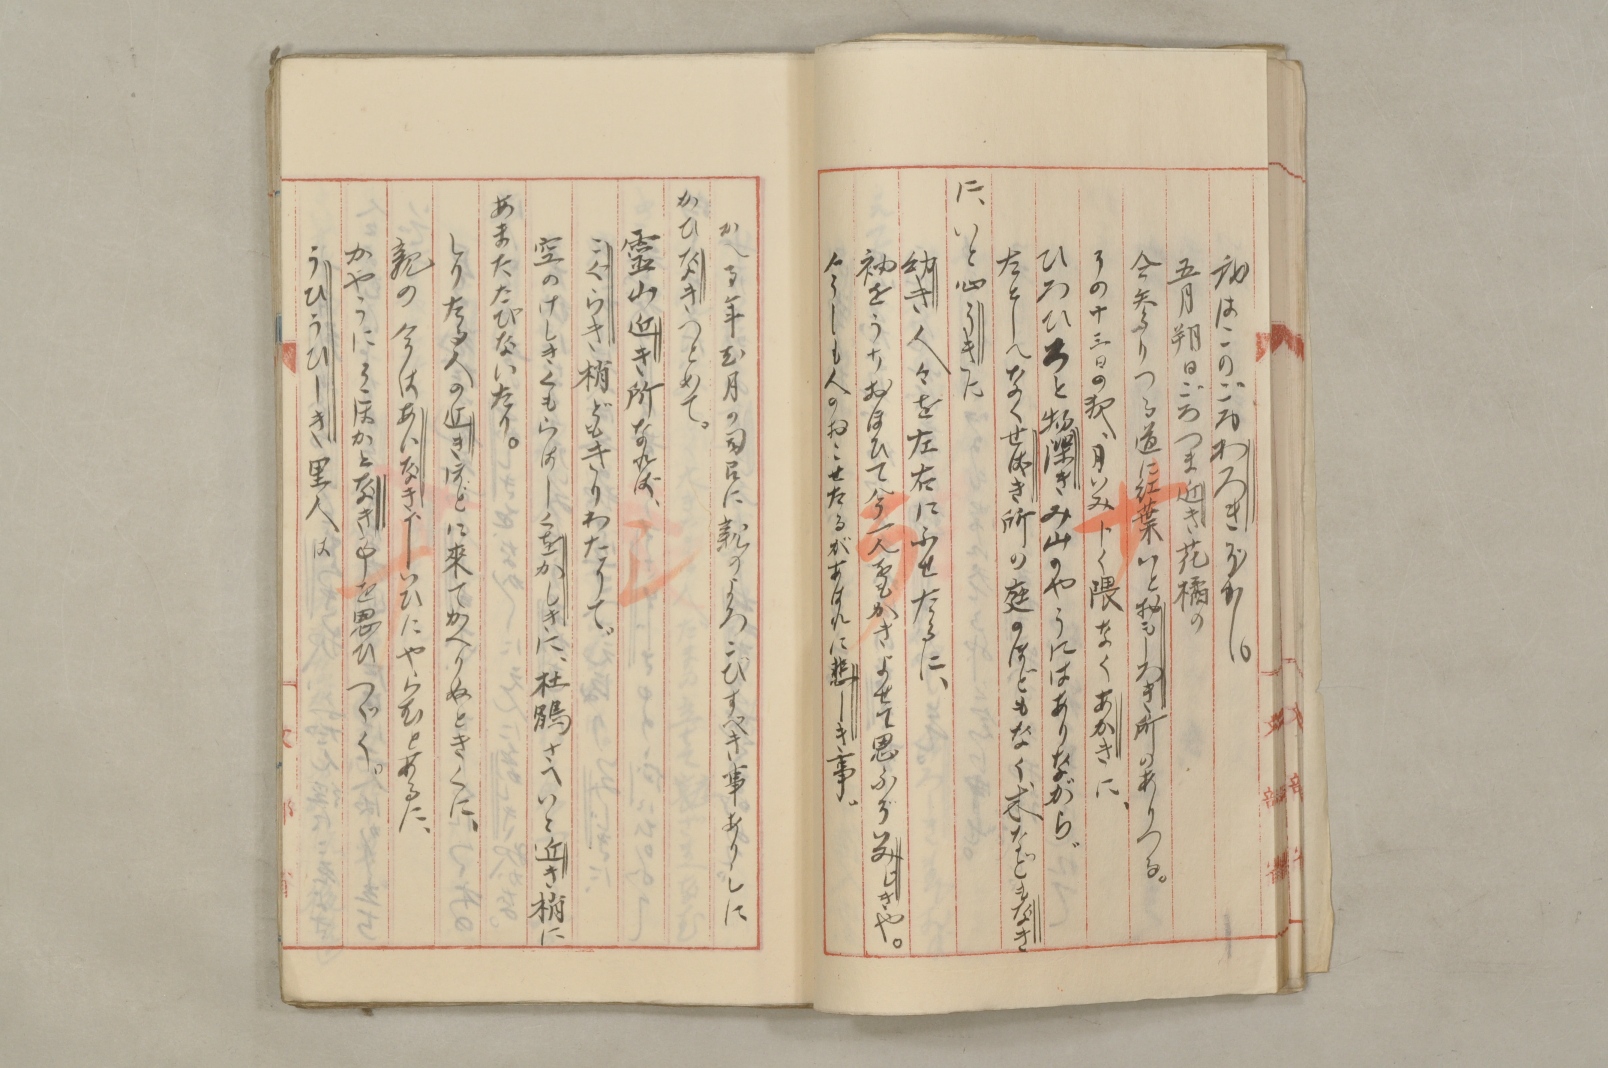 我はこのごろわろきぞかし。
五月朔日ごろつま近き花橘の
今參りつる道に紅葉いとおもしろき所のありつる。
その十三日の夜、月いみじく隈なくあかきに、
ひろびろと物深きみ山のやうにはありながら、
たとしへなくせばき所の庭のほどもなく、木などもなき
に、いと心うきに
幼き人々を左右にふせたるに、
袖をうちおほひて今一人をもかきよせて思ふぞいみじきや。
今しも人のおこせたるがあはれに悲しき事。
かへる年む月の司召に親のよろこびすべき事ありしに
かひなきつとめて。
靈山近き所なれば、
こぐらき梢どもきりわたりて。
空のけしきくもらはしくをかしきに、杜鵑さへいと近き梢に
あまたたびないたり。
しりたる人の近きほどに來てかへりぬときくに、
親の今はあいなきをしいひにやらむとあるに、
かやうにそこはかとなき事を思ひつゞく。
うひうひしき里人は